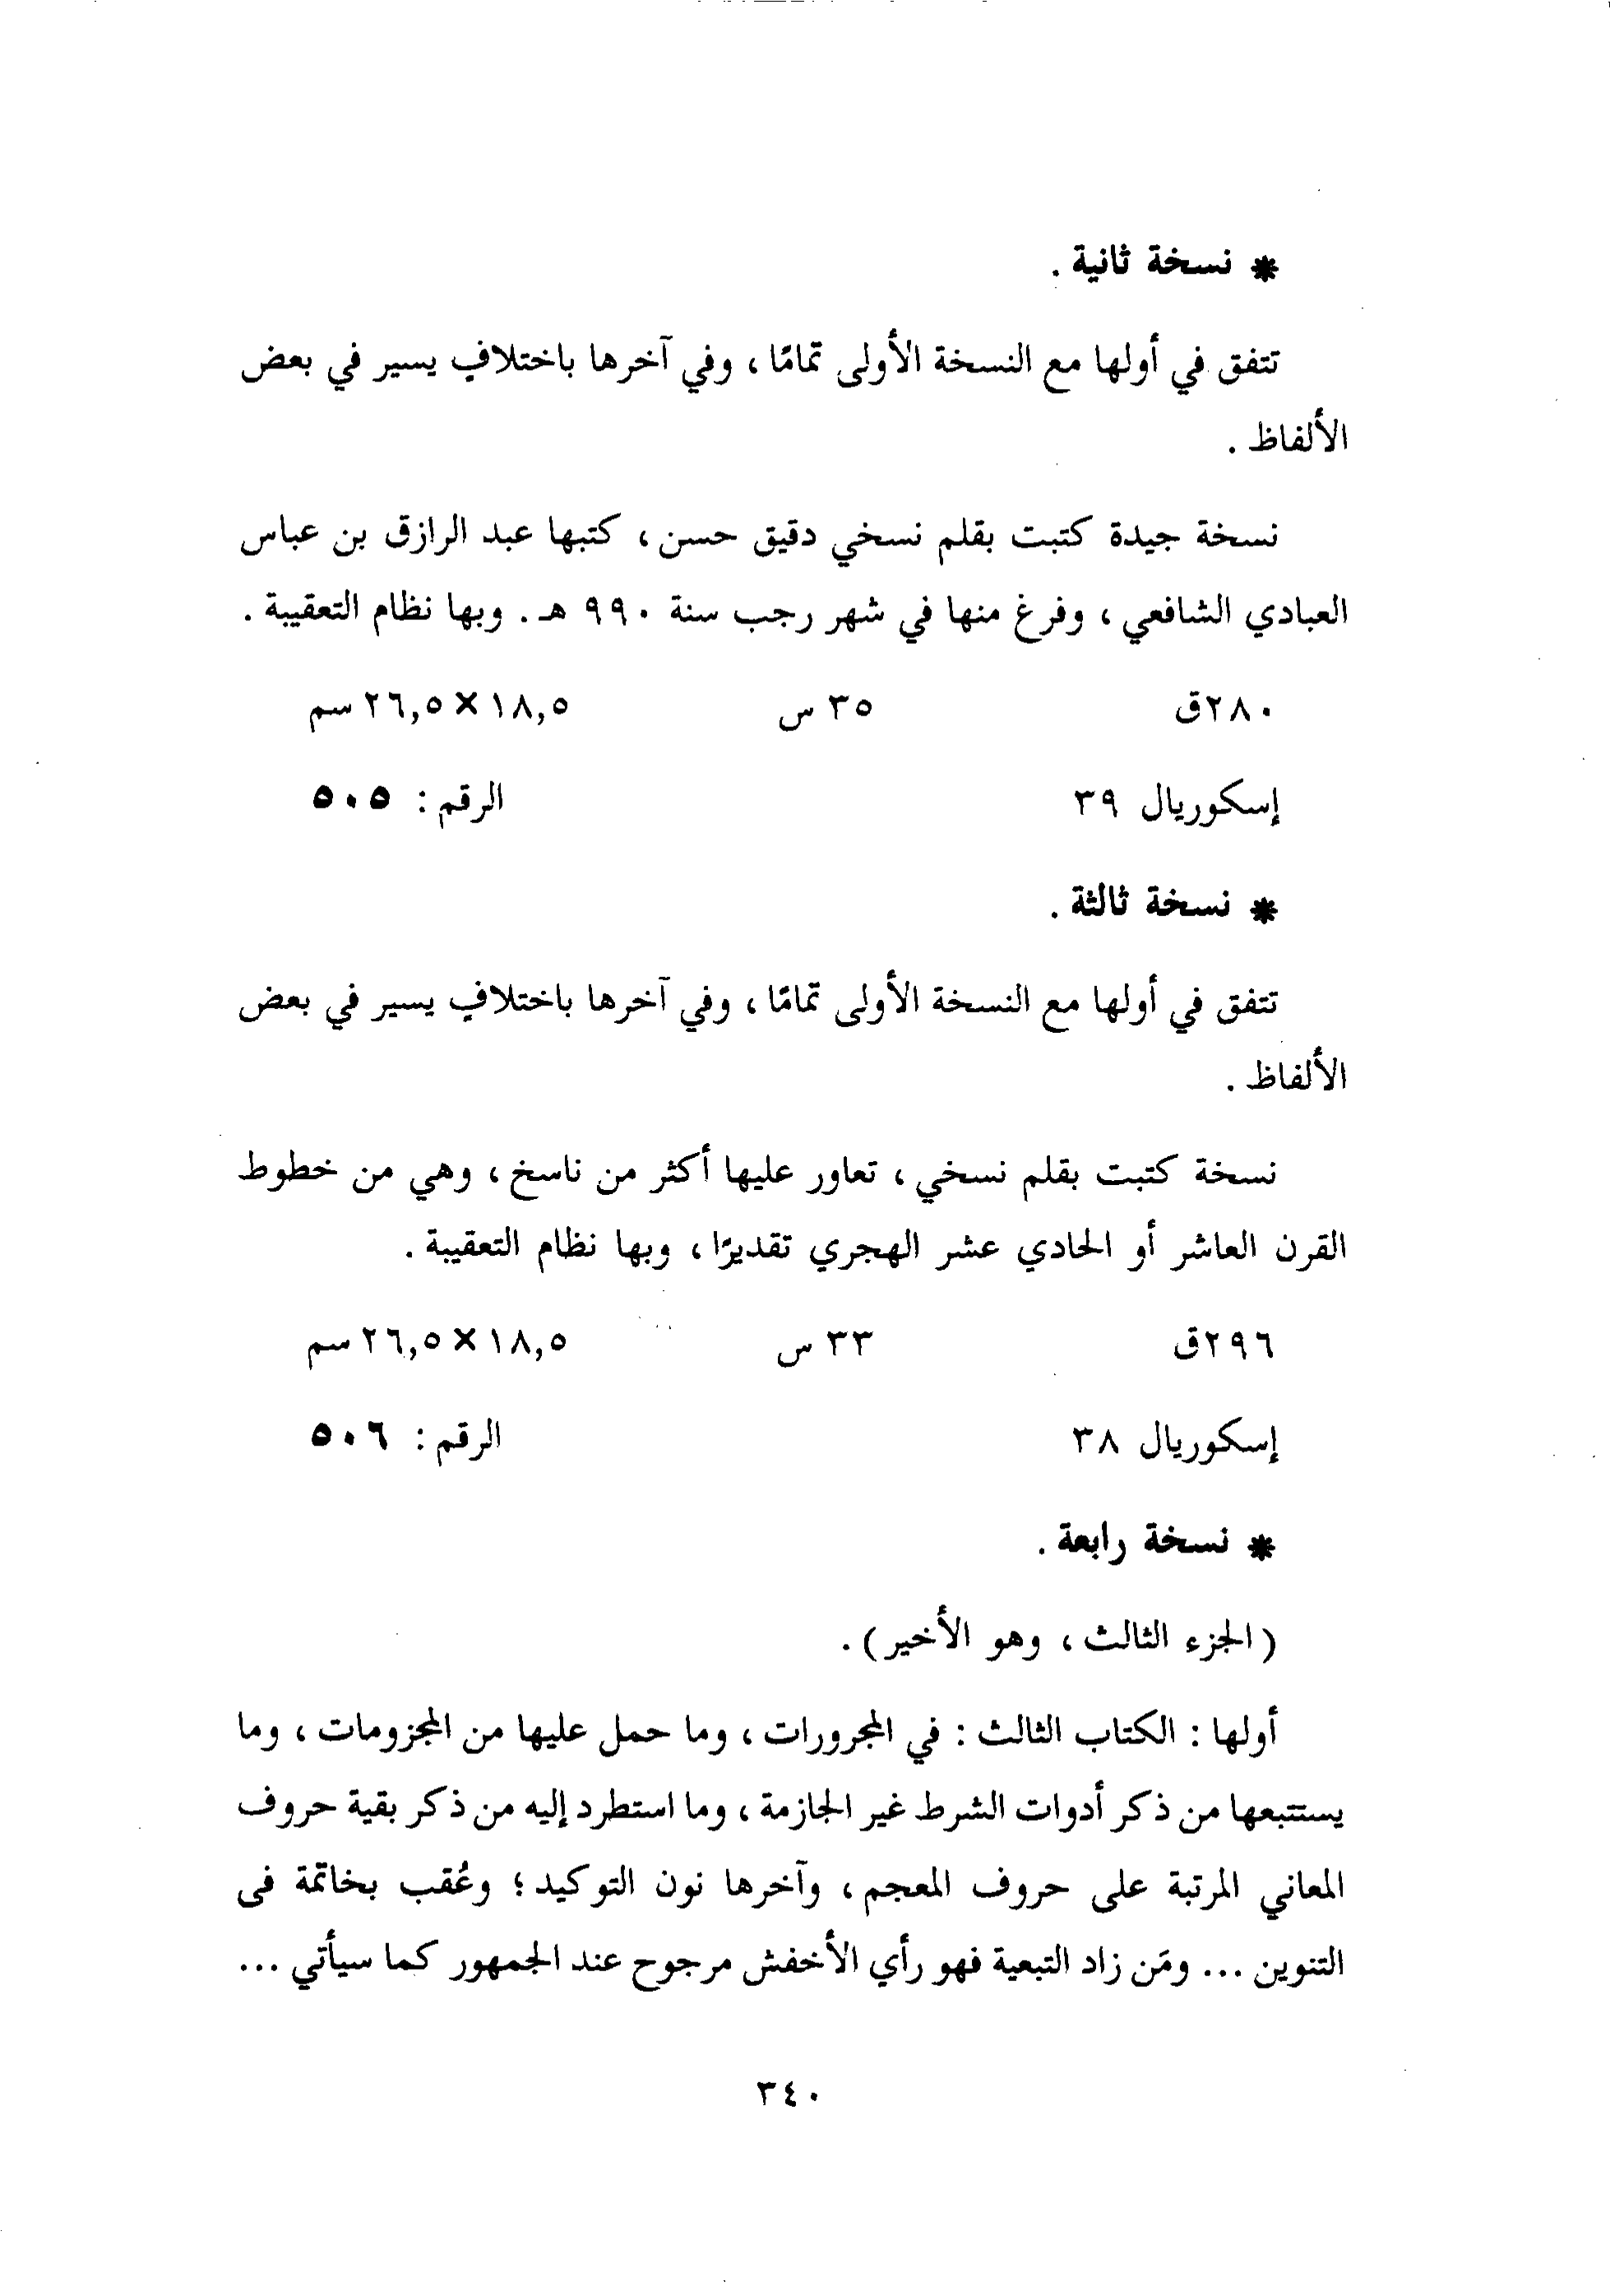 * نسخة ثانية .
تتفق في أولها مع النسخة الأولى تمامًا ، وفي آخرها باختلافٍ يسير في بعض
الألفاظ .
نسخة جيدة كتبت بقلم نسخي دقيق حسن ، كتبها عبد الرازق بن عباس
العبادي الشافعي ، وفرغ منها في شهر رجب سنة ٩٩٠ هـ . وبها نظام التعقيبة .
٢٨٠ق ٣٥ س ١٨,٥×٢٦,٥ سم
إسكوريال ٣٩ الرقم : ٥٠٥
* نسخة ثالثة .
تتفق في أولها مع النسخة الأولى تمامًا ، وفي آخرها باختلافٍ يسير في بعض
الألفاظ .
نسخة كتبت بقلم نسخي ، تعاور عليها أكثر من ناسخ ، وهي من خطوط
القرن العاشر أو الحادي عشر الهجري تقديرًا ، وبها نظام التعقيبة .
٢٩٦ق ٣٣ س ١٨,٥×٢٦,٥ سم
إسكوريال ٣٨ الرقم : ٥٠٦
* نسخة رابعة .
(الجزء الثالث ، وهو الأخير) .
أولها : الكتاب الثالث : في المجرورات ، وما حمل عليها من المجزومات ، وما
يستتبعها من ذكر أدوات الشرط غير الجازمة ، وما استطرد إليه من ذكر بقية حروف
المعاني المرتبة على حروف المعجم ، وآخرها نون التوكيد ؛ وعُقب بخاتمة فى
التنوين ... ومَن زاد التبعية فهو رأي الأخفش مرجوح عند الجمهور كما سيأتي ...
٣٤٠